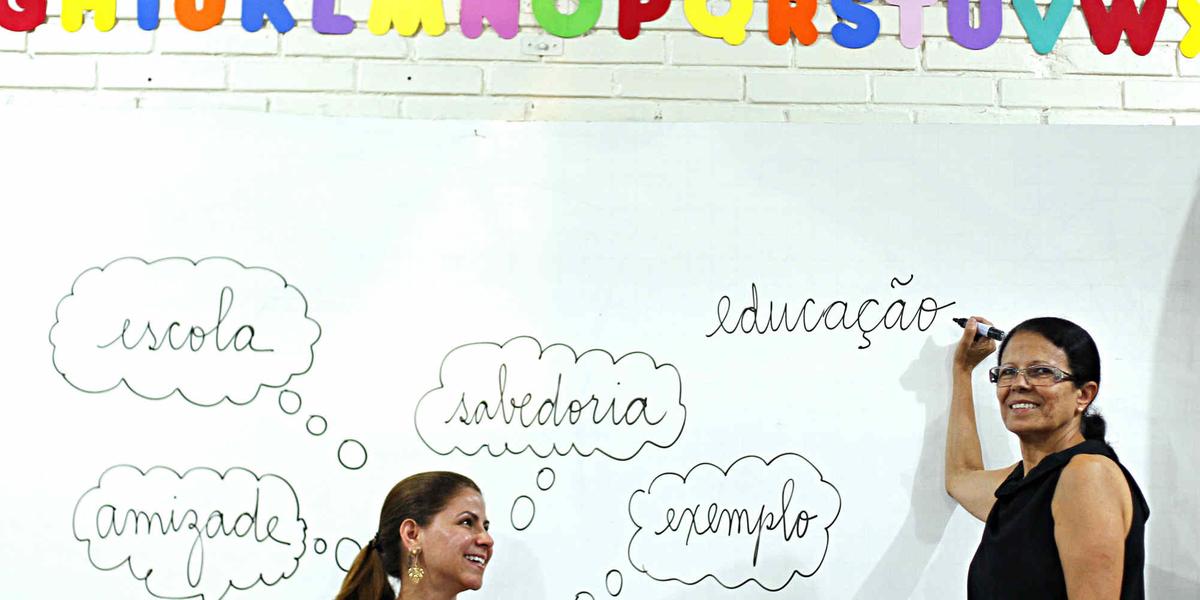 GHIJKLMNOPQRSTUVWX
educação
escola
sabedoria
amizade
exemplo